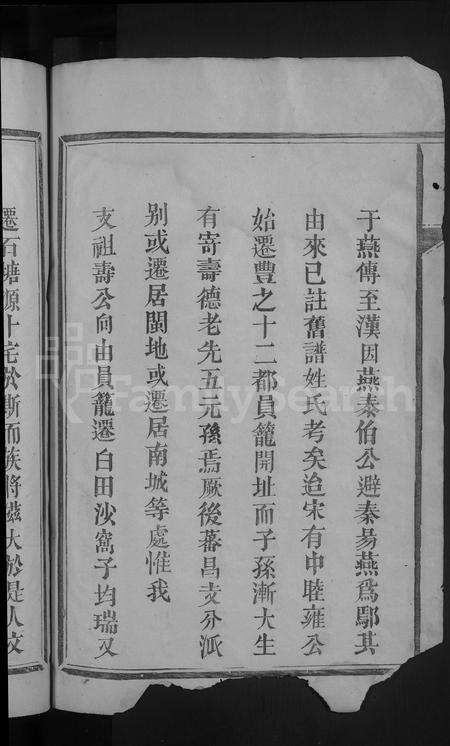 于燕傳至漢因燕泰伯公避秦易燕爲鄢其
由來已註舊譜姓氏考矣迨宋有中睦雍公
始遷豐之十二都員籠開址而子孫漸大生
有寄壽德老先五元孫焉厥後蕃昌支分派
别或遷居閩地或遷居南城等處惟我
支祖壽公向由員籠遷白田沙窩子均瑞又
遷石塘源卜宅於斯而族將茲大於是人文
FamilySearch